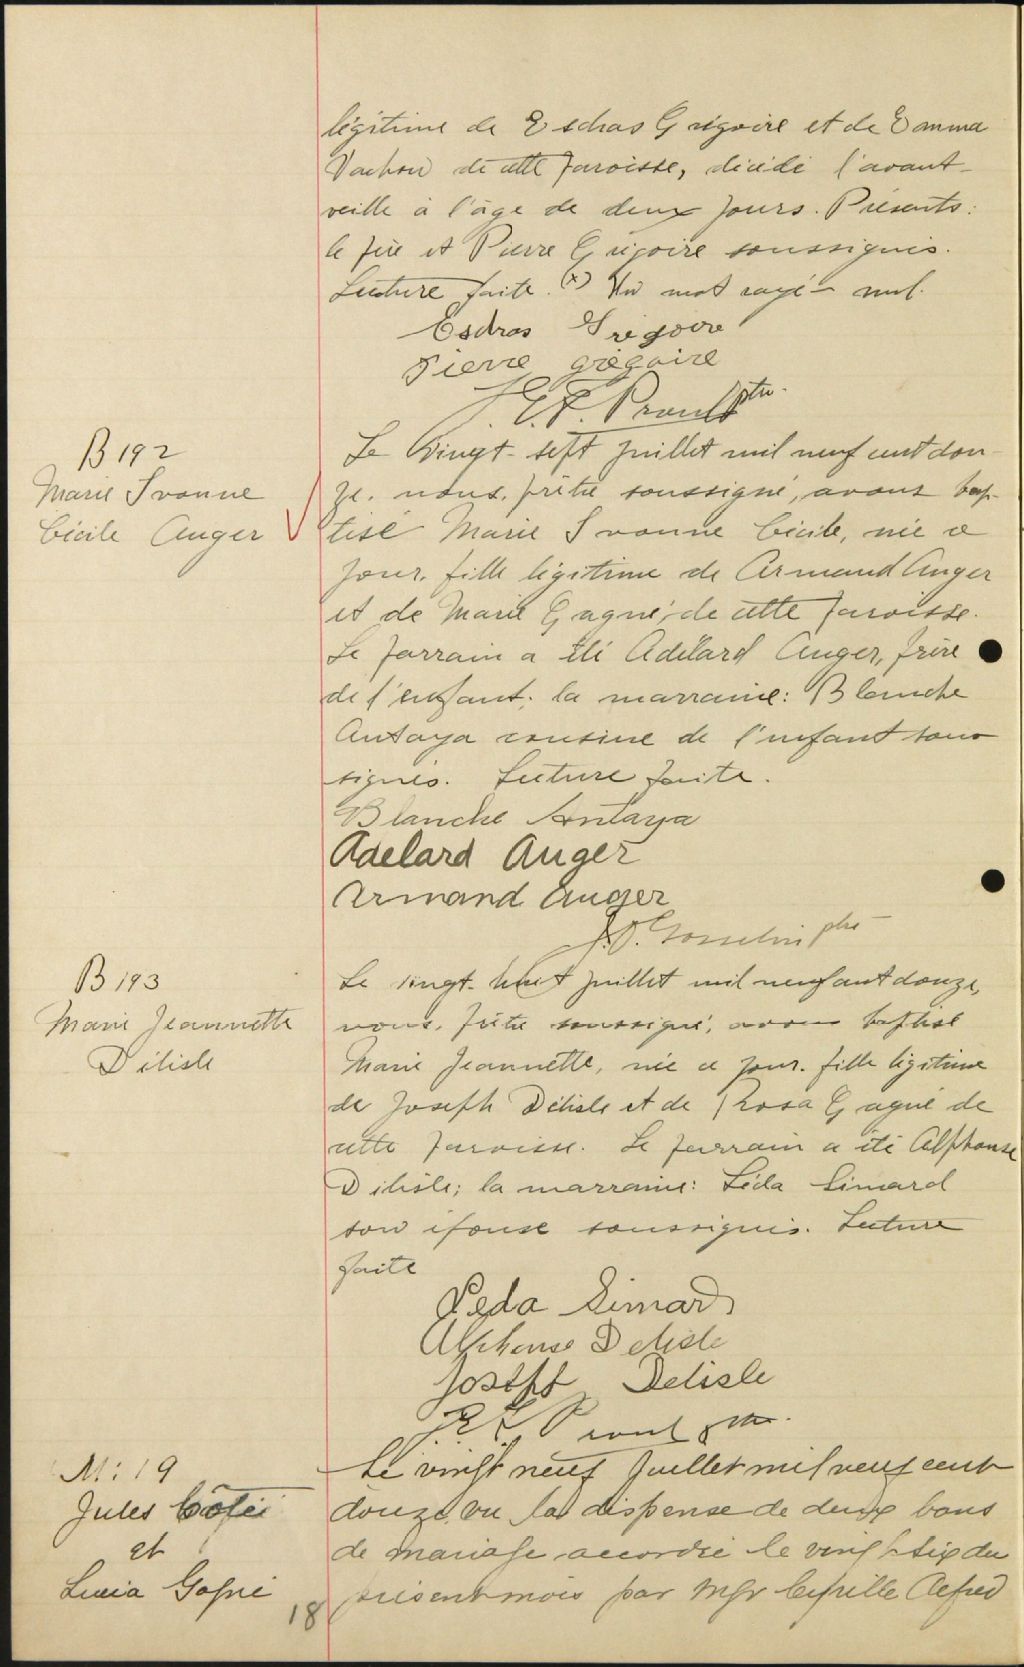 légitime de Esdras Grégoire et de Emma
Vachon de cette paroisse, décédé l'avant-
veille à l'âge de deux jours. Présents:
le père et Pierre Grégoire soussignés.
Lecture faite. (x) Un mot rayé nul.
Esdras Grégoire
Pierre grégoire
J. E. F. Proulx ptre.
B 192
Marie Ivonne
Cécile Auger
Le vingt-sept juillet mil neuf cent dou-
ze, nous, prêtre soussigné, avons bap-
tisé Marie Ivonne Cécile, née ce
jour, fille légitime de Armand Auger
et de Marie Gagné, de cette paroisse.
Le parrain a été Adélard Auger, frère
de l'enfant; la marraine: Blanche
Antaya cousine de l'enfant sous
signés. Lecture faite.
Blanche Antaya
Adelard Auger
Armand Auger
J.O. Gosselin ptre
B 193
Marie Jeannette
Délisle
Le vingt-huit juillet mil neuf cent douze,
nous, prêtre soussigné, avons baptisé
Marie Jeannette, née ce jour, fille légitime
de Joseph Délisle et de Rosa Gagné de
cette paroisse. Le parrain a été Alphonse
Délisle; la marraine: Léda Simard
son épouse soussignés. Lecture
faite
Leda Simard
Alphonse Delisle
Joseph Delisle
J. E. F. Proulx ptre.
M: 19
Jules Côté
et
Lucia
18
Le vingt neuf Juillet mil neuf cent
douze, vu la dispense de deux bans
de mariage accordée le vingt six du
présent mois par Mgr Cyrille Alfred